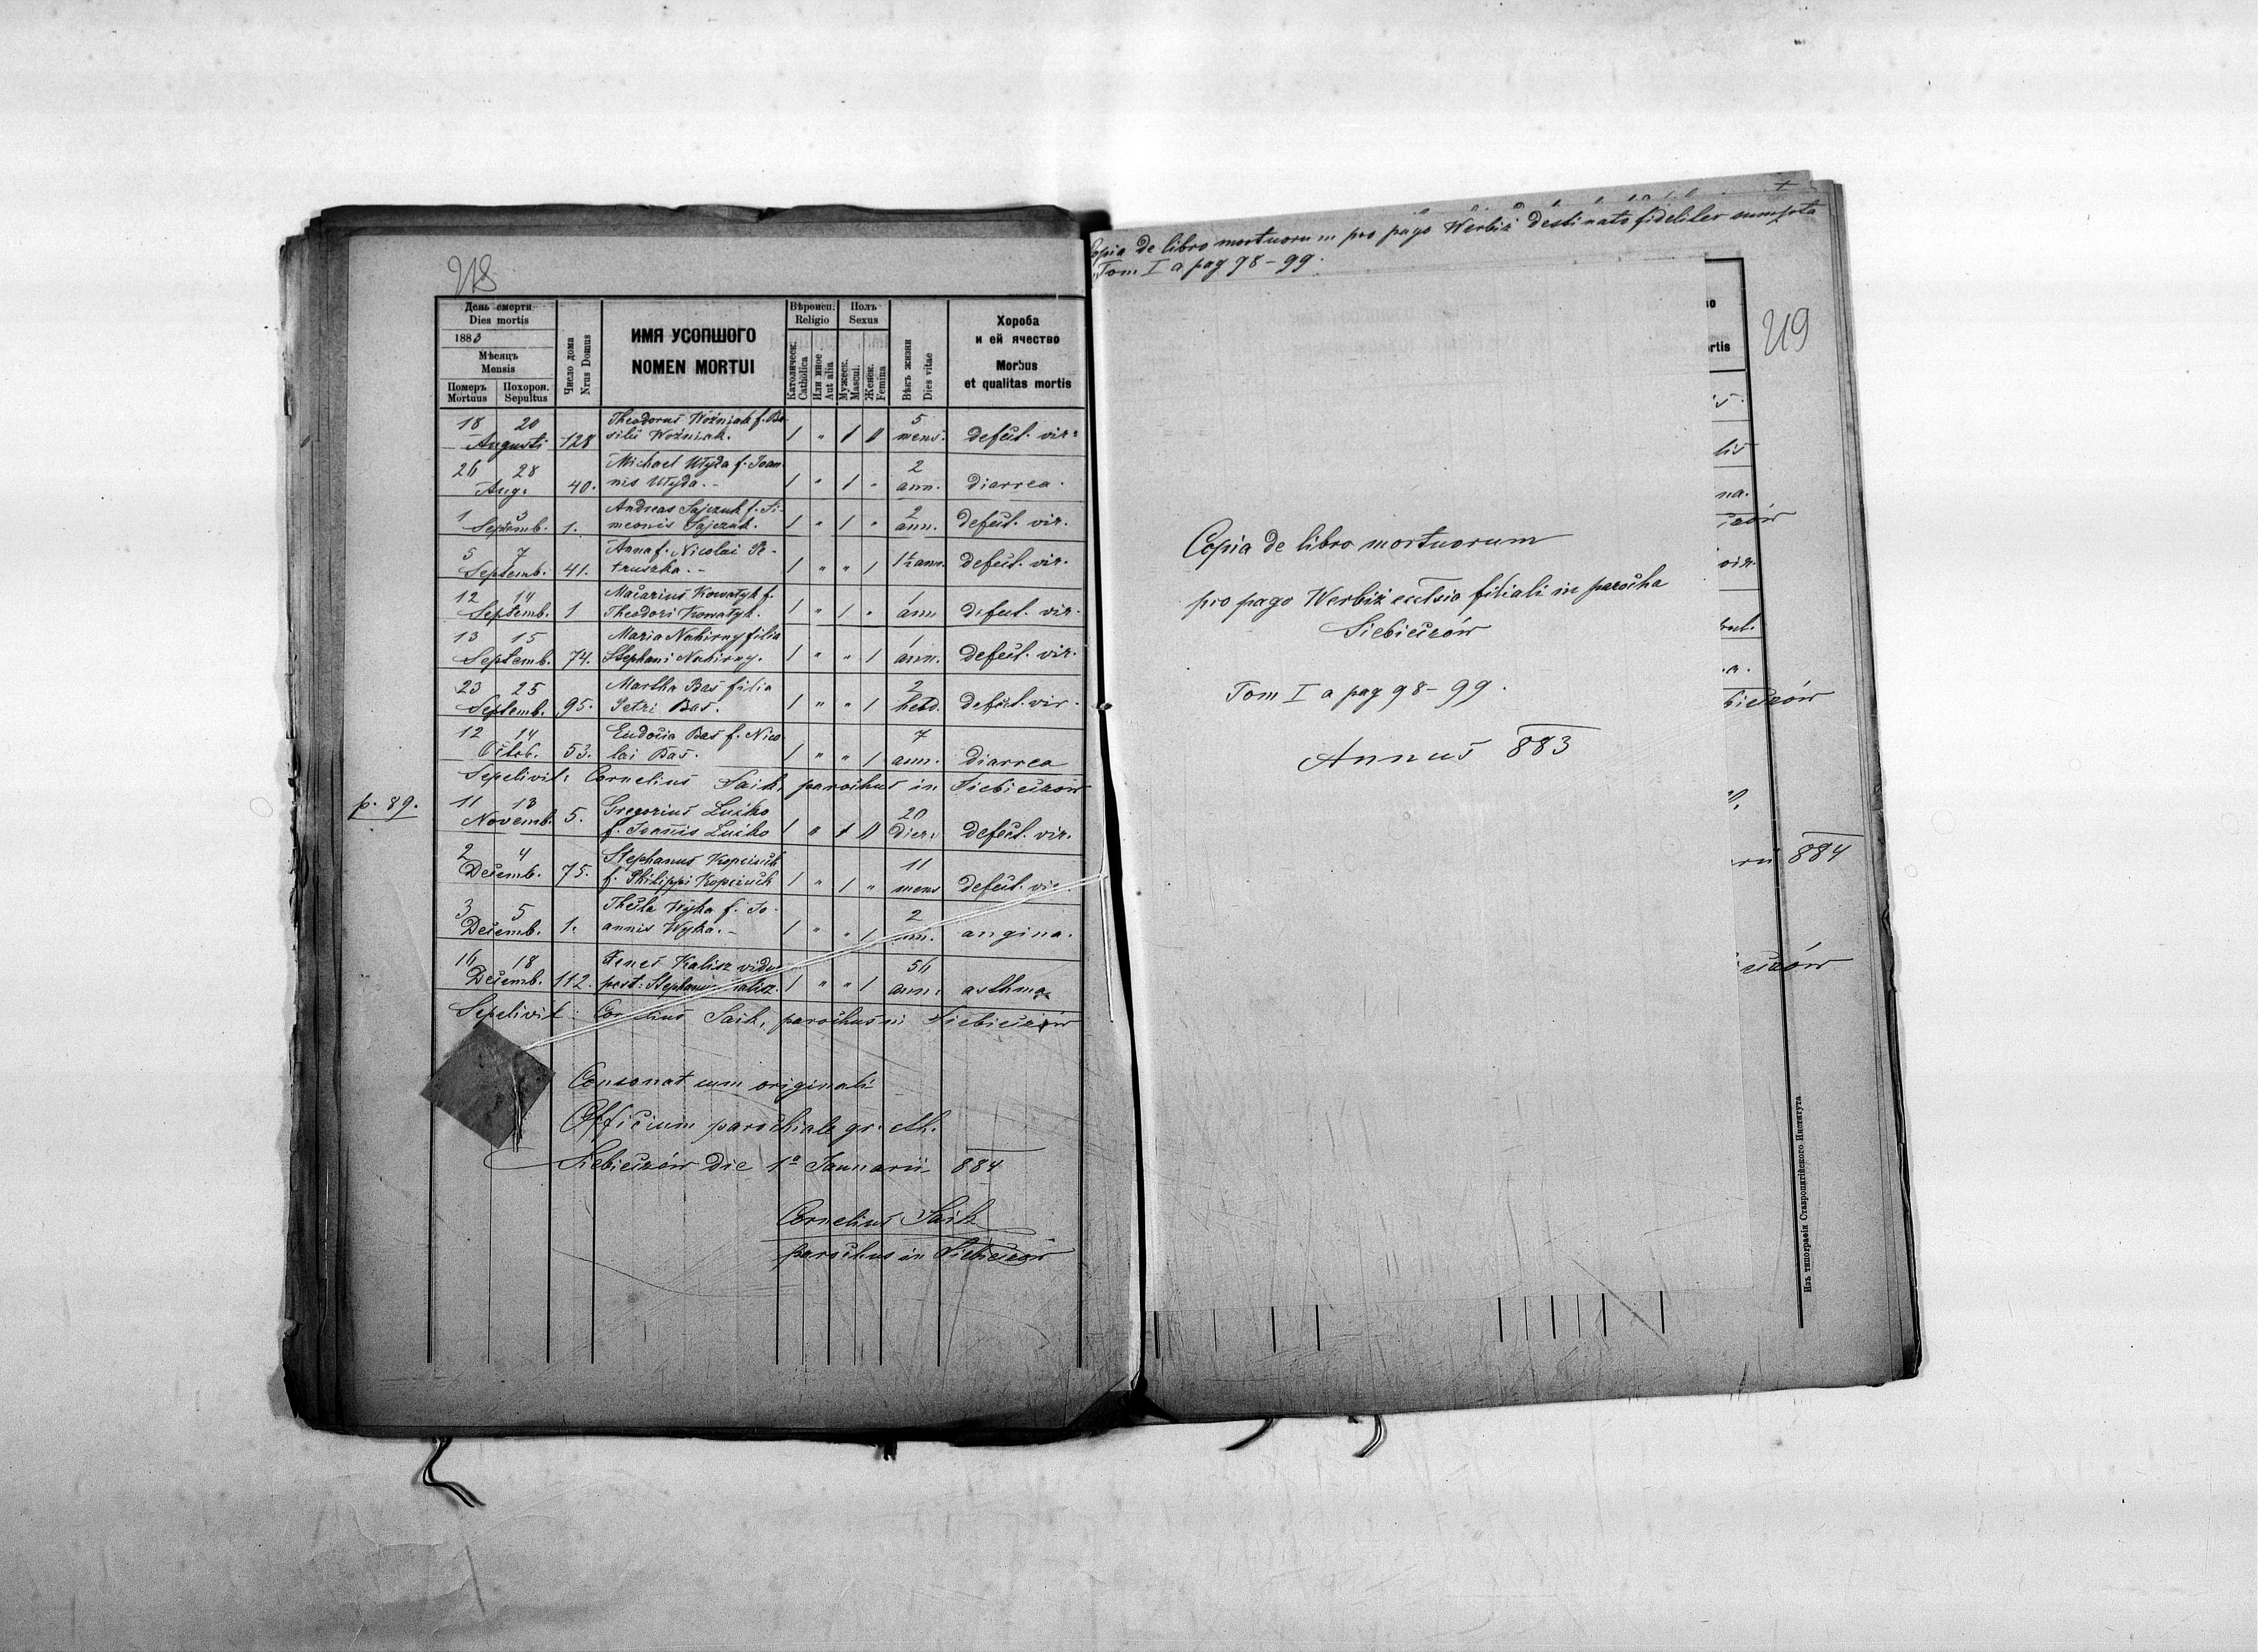 218
День смерти
Dies mortis
1883
Мѣсяцъ
Mensis
Померъ
Mortuus
Похорон.
Sepultus
Число дома
Nrus Domus
ИМЯ УСОПШОГО
NOMEN MORTUI
Вѣроисп.
Religio
Католическ.
Catholica
Или иное
Aut alia
Полъ
Sexus
Мужеск.
Mascul.
Женск.
Femina
Вѣкъ жизни
Dies vitae
Хороба
и ей ячество
Morbus
et qualitas mortis
18 20 Theodorus Woźniak f. Ba- 5
Augusti 128 silii Woźniak. 1 " 1 mens. defect. vir.
26 28 Michael Utyda f. Joan- 2
Aug. 40. nis Utyda. - 1 " 1 " ann. diarrea.
1 3 Andreas Sajczuk f. Si- 2
Septemb. 1. meonis Sajczuk. 1 " 1 " ann. defect. vir.
5 7 Anna f. Nicolai Pe-
Septemb. 41. truszka. - 1 " " 1 1½ ann. defect. vir.
12 14 Macarius Kowalyk f. 1
Septemb. 1 Theodori Kowalyk. 1 " 1 " ann defect. vir.
13 15 Maria Nahirny filia 1
Septemb. 74. Stephani Nahirny. 1 " " 1 ann. defect. vir.
23 25 Martha Bas filia 2
Septemb. 95. Petri Bas. 1 " " 1 hebd. defect. vir.
12 14 Eudocia Bas f. Nico- 7
Octob. 53. lai Bas. 1 " " 1 ann. diarrea
Sepelivit: Cornelius Saik, parochus in Siebieczów
p. 89.
11 13 Gregorius Łućko 20
Novemb. 5. f. Joannis Łućko 1 " 1 dier. defect. vir.
2 4 Stephanus Kopciuch 11
Decemb. 75. f. Philippi Kopciuch 1 " 1 " mens defect. vir.
3 5 Thecla Wyka f. Jo- 2
Decemb. 1. annis Wyka. - 1 " " 1 ann. angina.
16 18 Kalisz vidua 56
Decemb. 112. post. Stephanum Kalisz. 1 " " 1 ann. asthma
Sepelivit: Cornelius Saik, parochus in Siebieczów
Consonat cum originali
Officium parochiale gr. cth.
Siebieczów die 1a Januarii 884
Cornelius Saik
parochus in Siebieczów
Copia de libro mortuorum pro pago Werbiż destinato fideliter sumpta
Tom I a pag 98-99.
219
Copia de libro mortuorum
pro pago Werbiż ecclsia filiali in parocha
Siebieczów
Tom I a pag 98-99.
Annus 883
rtis
lis
na.
czów
vir.
bieczów
884
eczów
Изъ типографіи Ставропигійского Института